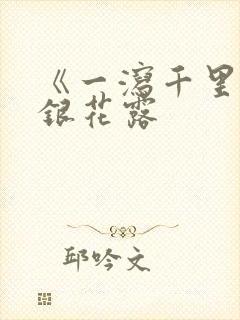 《一瀉千里
銀花露
邱吟文